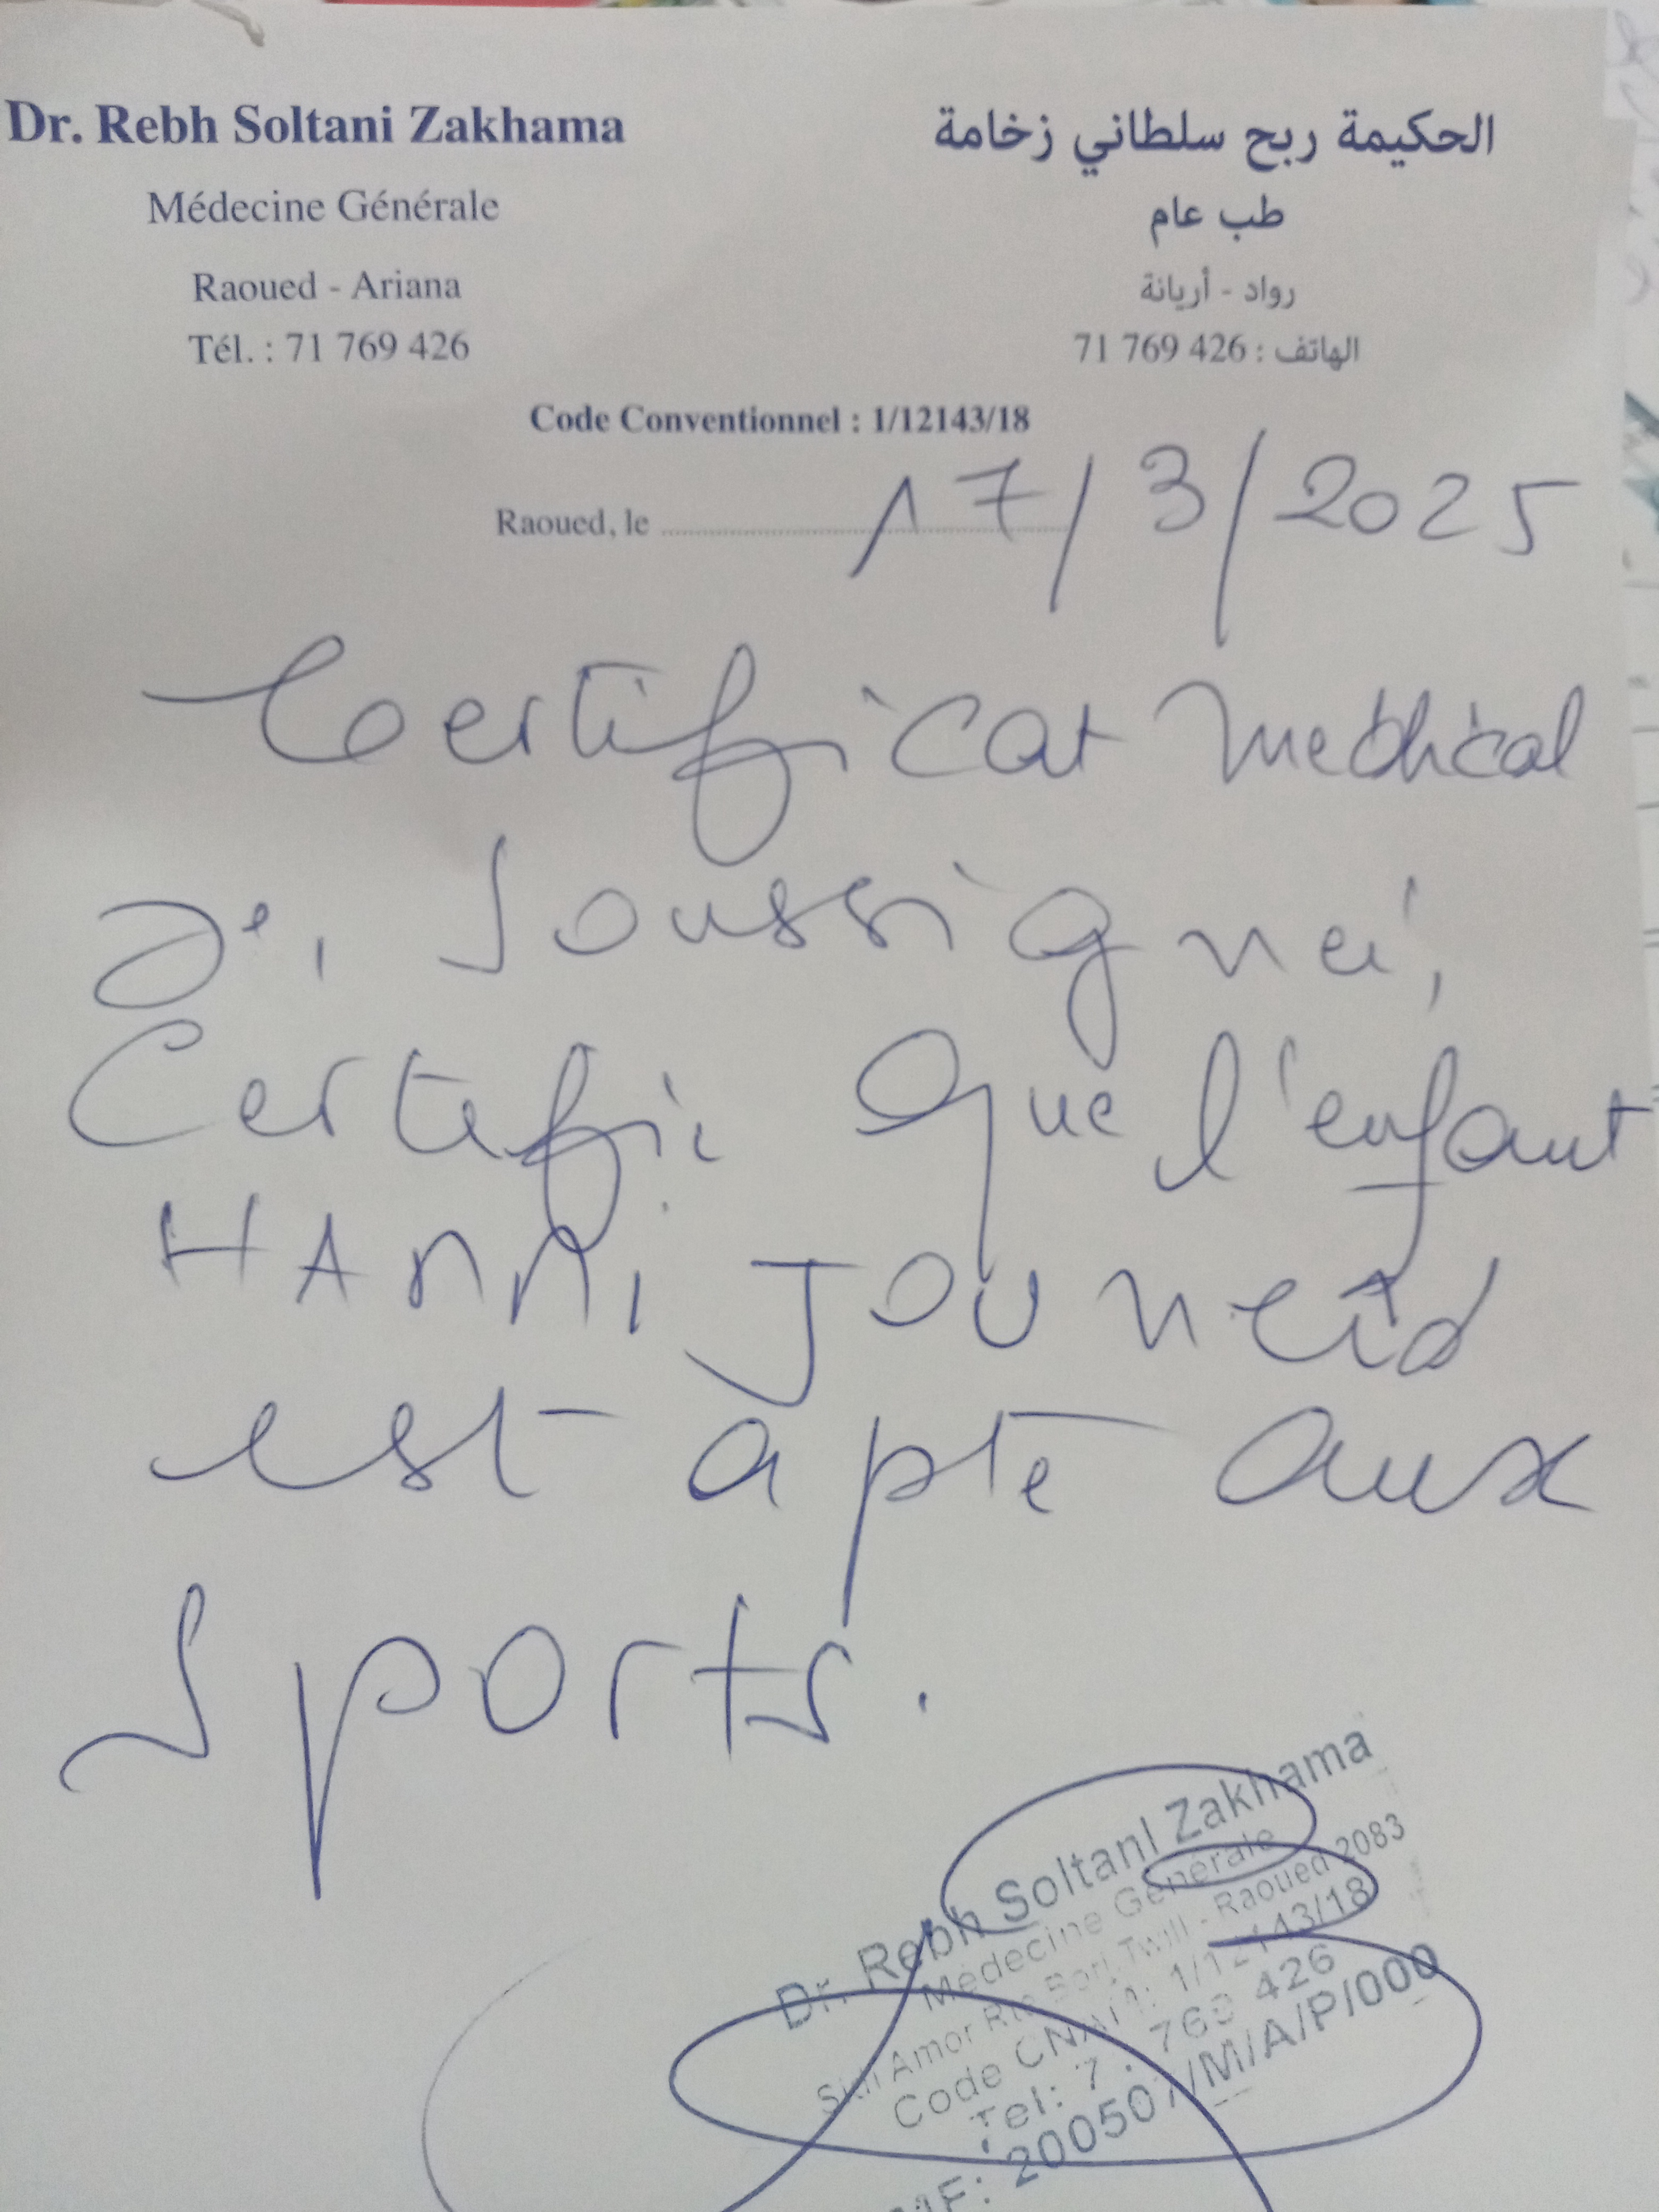 Dr. Rebh Soltani Zakhama
Médecine Générale
Raoued - Ariana
Tél. : 71 769 426
الحكيمة ربح سلطاني زخامة
طب عام
رواد - أريانة
الهاتف : 426 769 71
Code Conventionnel : 1/12143/18
Raoued, le 17/3/2025
Certificat medical
Je, soussigné,
Certifie que l'enfant
HAnni Jouneid
est apte aux
Sports.
Dr. Rebh SoltanI Zakhama
Médecine Générale
Sidi Amor Rte Borj Twill - Raoued 2083
Code CNAM: 1/12143/18
Tel: 7 769 426
MF: 200507/M/A/P/000